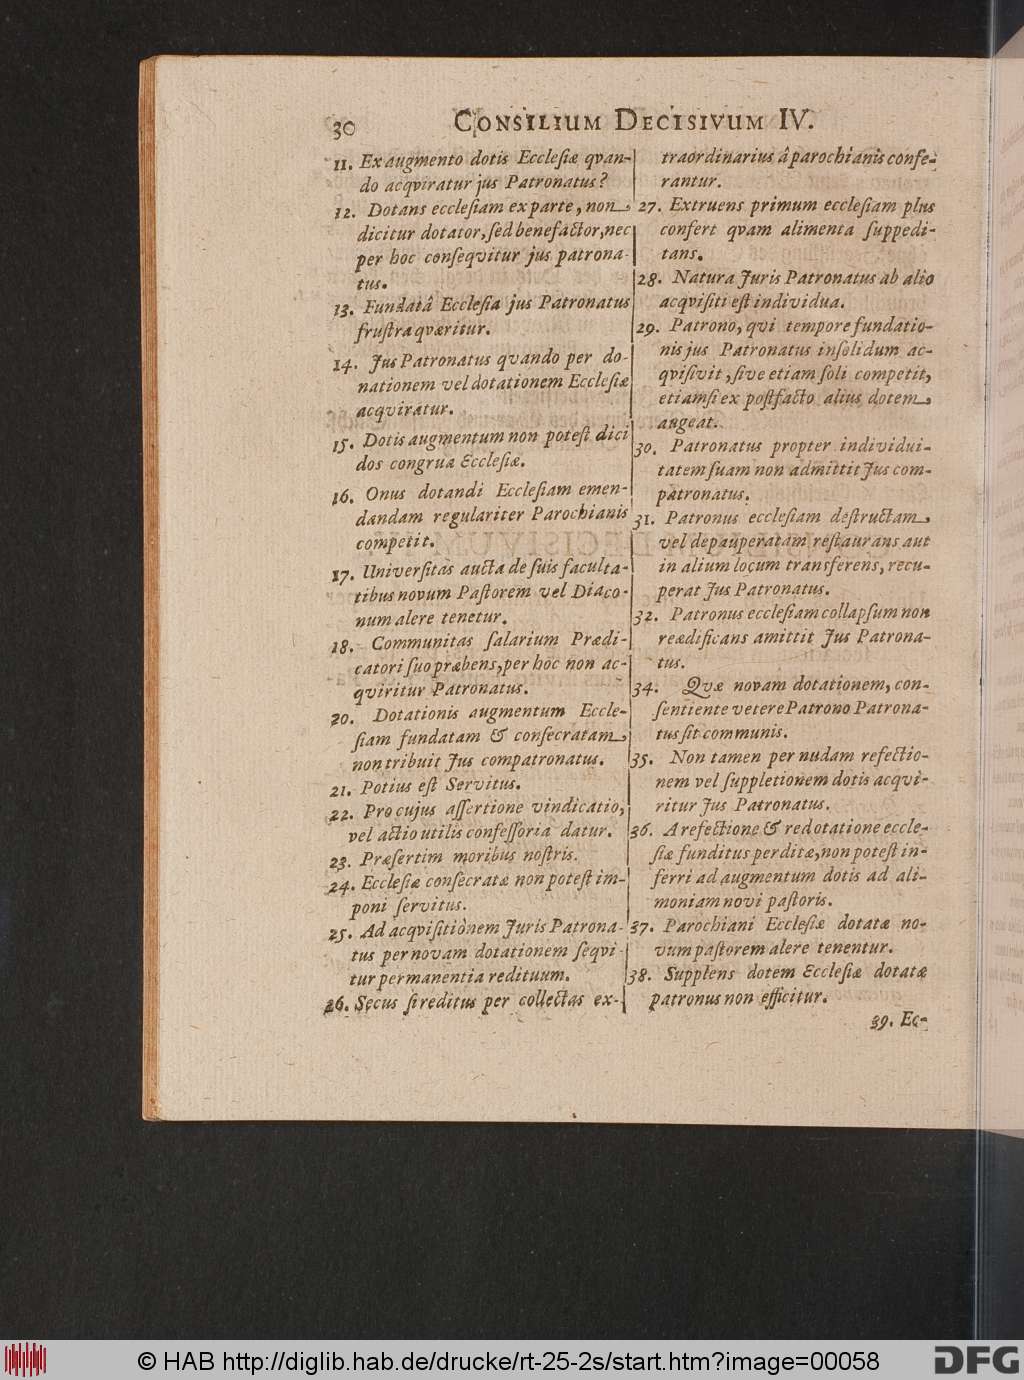 30 CONSILIUM DECISIVUM IV.
11. Ex augmento dotis Ecclesiæ qvan-
do acqviratur jus Patronatus?
12. Dotans ecclesiam ex parte, non
dicitur dotator, sed benefactor, nec
per hoc conseqvitur jus patrona-
tus.
13. Fundatâ Ecclesia jus Patronatus
frustra qværitur.
14. Jus Patronatus qvando per do-
nationem vel dotationem Ecclesiæ
acqviratur.
15. Dotis augmentum non potest dici
dos congrua Ecclesiæ.
16. Onus dotandi Ecclesiam emen-
dandam regulariter Parochianis
competit.
17. Universitas aucta de suis faculta-
tibus novum Pastorem vel Diaco-
num alere tenetur.
18. Communitas salarium Prædi-
catori suo præbens, per hoc non ac-
qviritur Patronatus.
20. Dotationis augmentum Eccle-
siam fundatam & consecratam
non tribuit Jus compatronatus.
21. Potius est Servitus.
22. Pro cujus assertione vindicatio,
vel actio utilis confessoria datur.
23. Præsertim moribus nostris.
24. Ecclesiæ consecratæ non potest im-
poni servitus.
25. Ad acqvisitionem Juris Patrona-
tus per novam dotationem seqvi-
tur permanentia redituum.
26. Secus si reditus per collectas ex-
traordinarius â parochianis confe-
rantur.
27. Extruens primum ecclesiam plus
confert qvam alimenta suppedi-
tans.
28. Natura Juris Patronatus ab alio
acqvisiti est individua.
29. Patrono, qvi tempore fundatio-
nis jus Patronatus insolidum ac-
qvisivit, sive etiam soli competit,
etiamsi ex postfacto alius dotem
augeat.
30. Patronatus propter individui-
tatem suam non admittit Jus com-
patronatus.
31. Patronus ecclesiam destructam
vel depauperatam restaurans aut
in alium locum transferens, recu-
perat Jus Patronatus.
32. Patronus ecclesiam collapsum non
reædificans amittit Jus Patrona-
tus.
34. Qvæ novam dotationem, con-
sentiente vetere Patrono Patrona-
tus sit communis.
35. Non tamen per nudam refectio-
nem vel suppletionem dotis acqvi-
ritur Jus Patronatus.
36. A refectione & redotatione eccle-
siæ funditus perditæ, non potest in-
ferri ad augmentum dotis ad ali-
moniam novi pastoris.
37. Parochiani Ecclesiæ dotatæ no-
vum pastorem alere tenentur.
38. Supplens dotem Ecclesiæ dotatæ
patronus non efficitur.
39. Ec-
© HAB http://diglib.hab.de/drucke/rt-25-2s/start.htm?image=00058
DFG